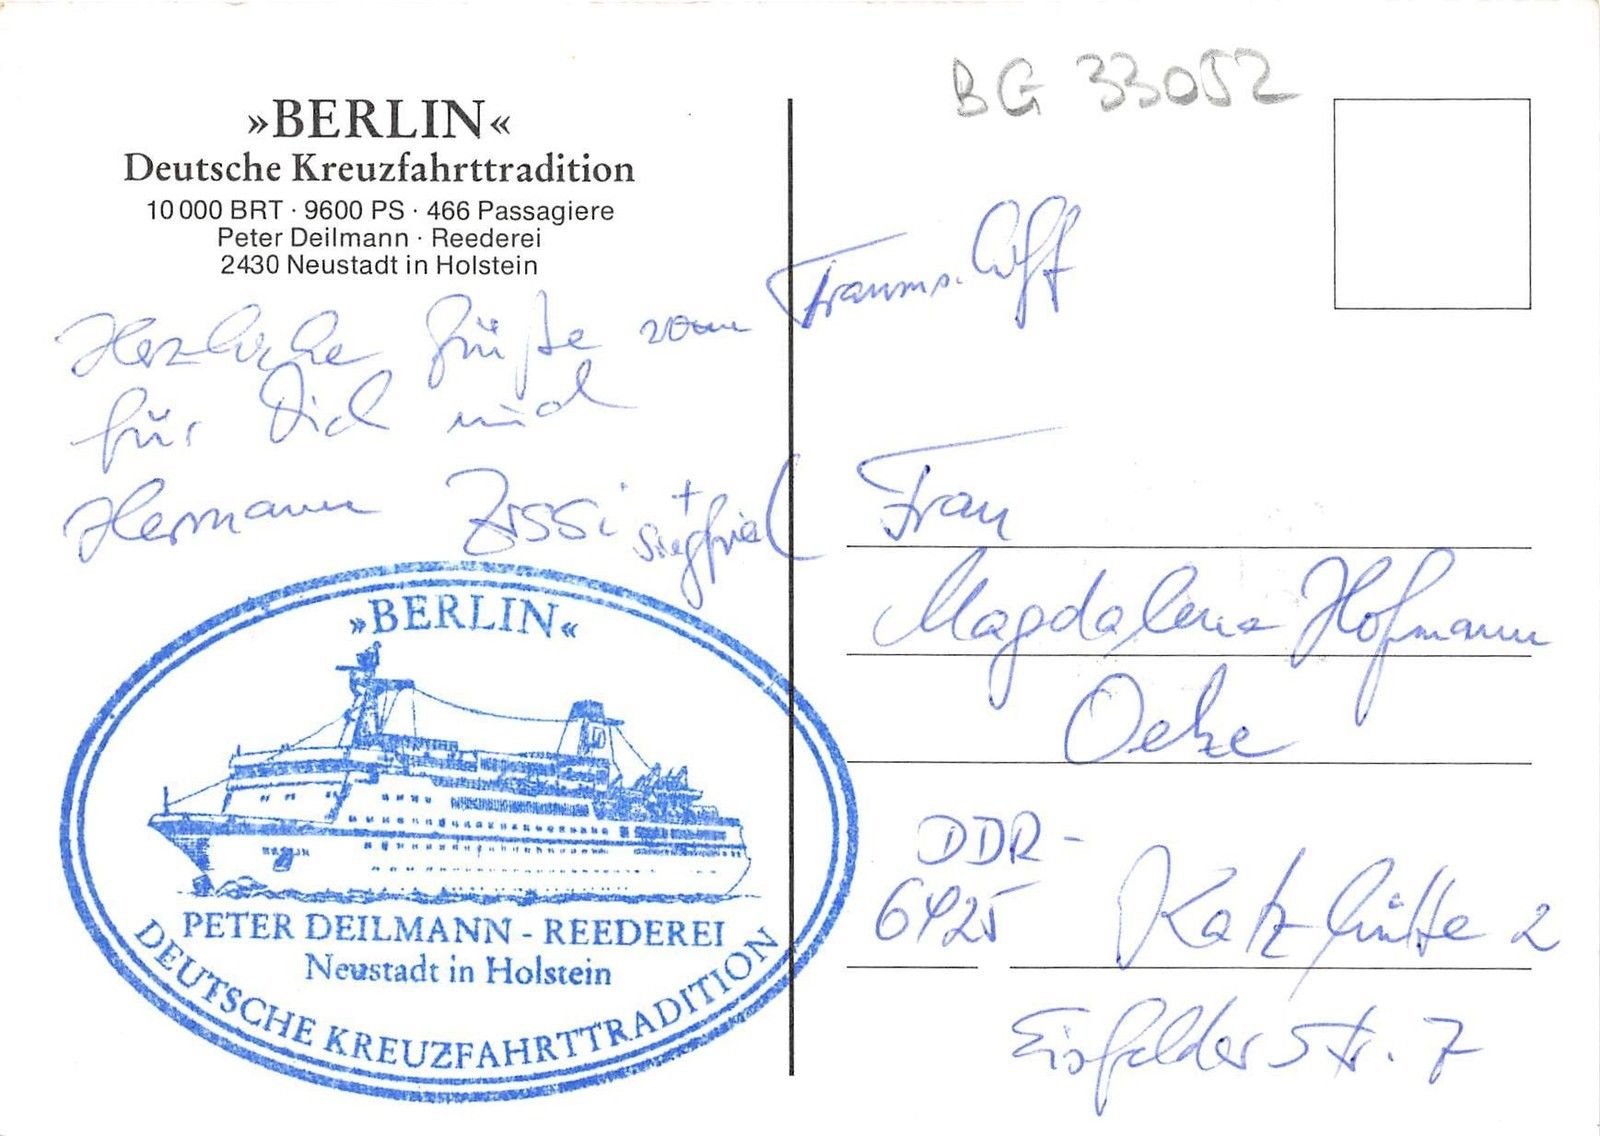 BG 33052
»BERLIN«
Deutsche Kreuzfahrttradition
10 000 BRT · 9600 PS · 466 Passagiere
Peter Deilmann · Reederei
2430 Neustadt in Holstein
Herzliche Grüße vom Traumschiff
für Dich und
Hermann Zissi + Siegfried
»BERLIN«
BERLIN
PETER DEILMANN - REEDEREI
Neustadt in Holstein
DEUTSCHE KREUZFAHRTTRADITION
Frau
Magdalena Hofmann
Oelze
DDR-
6425 Katzhütte 2
Eisfelder Str. 7